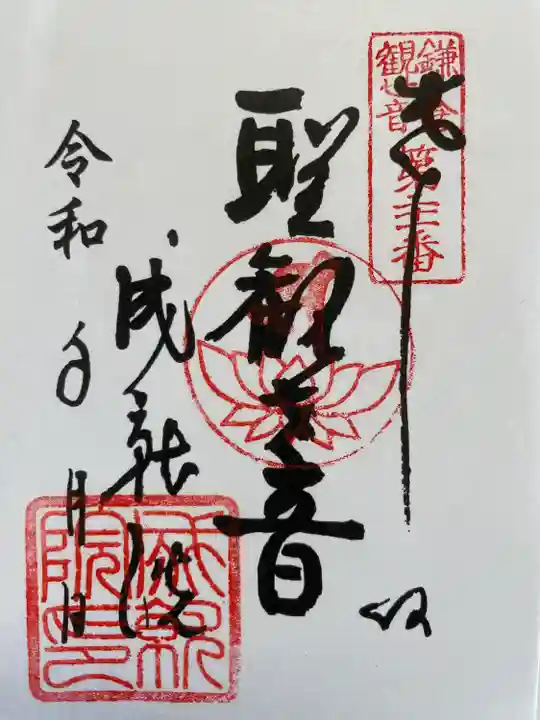 鎌倉
観世音
第廿一番
奉拝
聖観世音
成就院
令和 年 月 日
成就院印